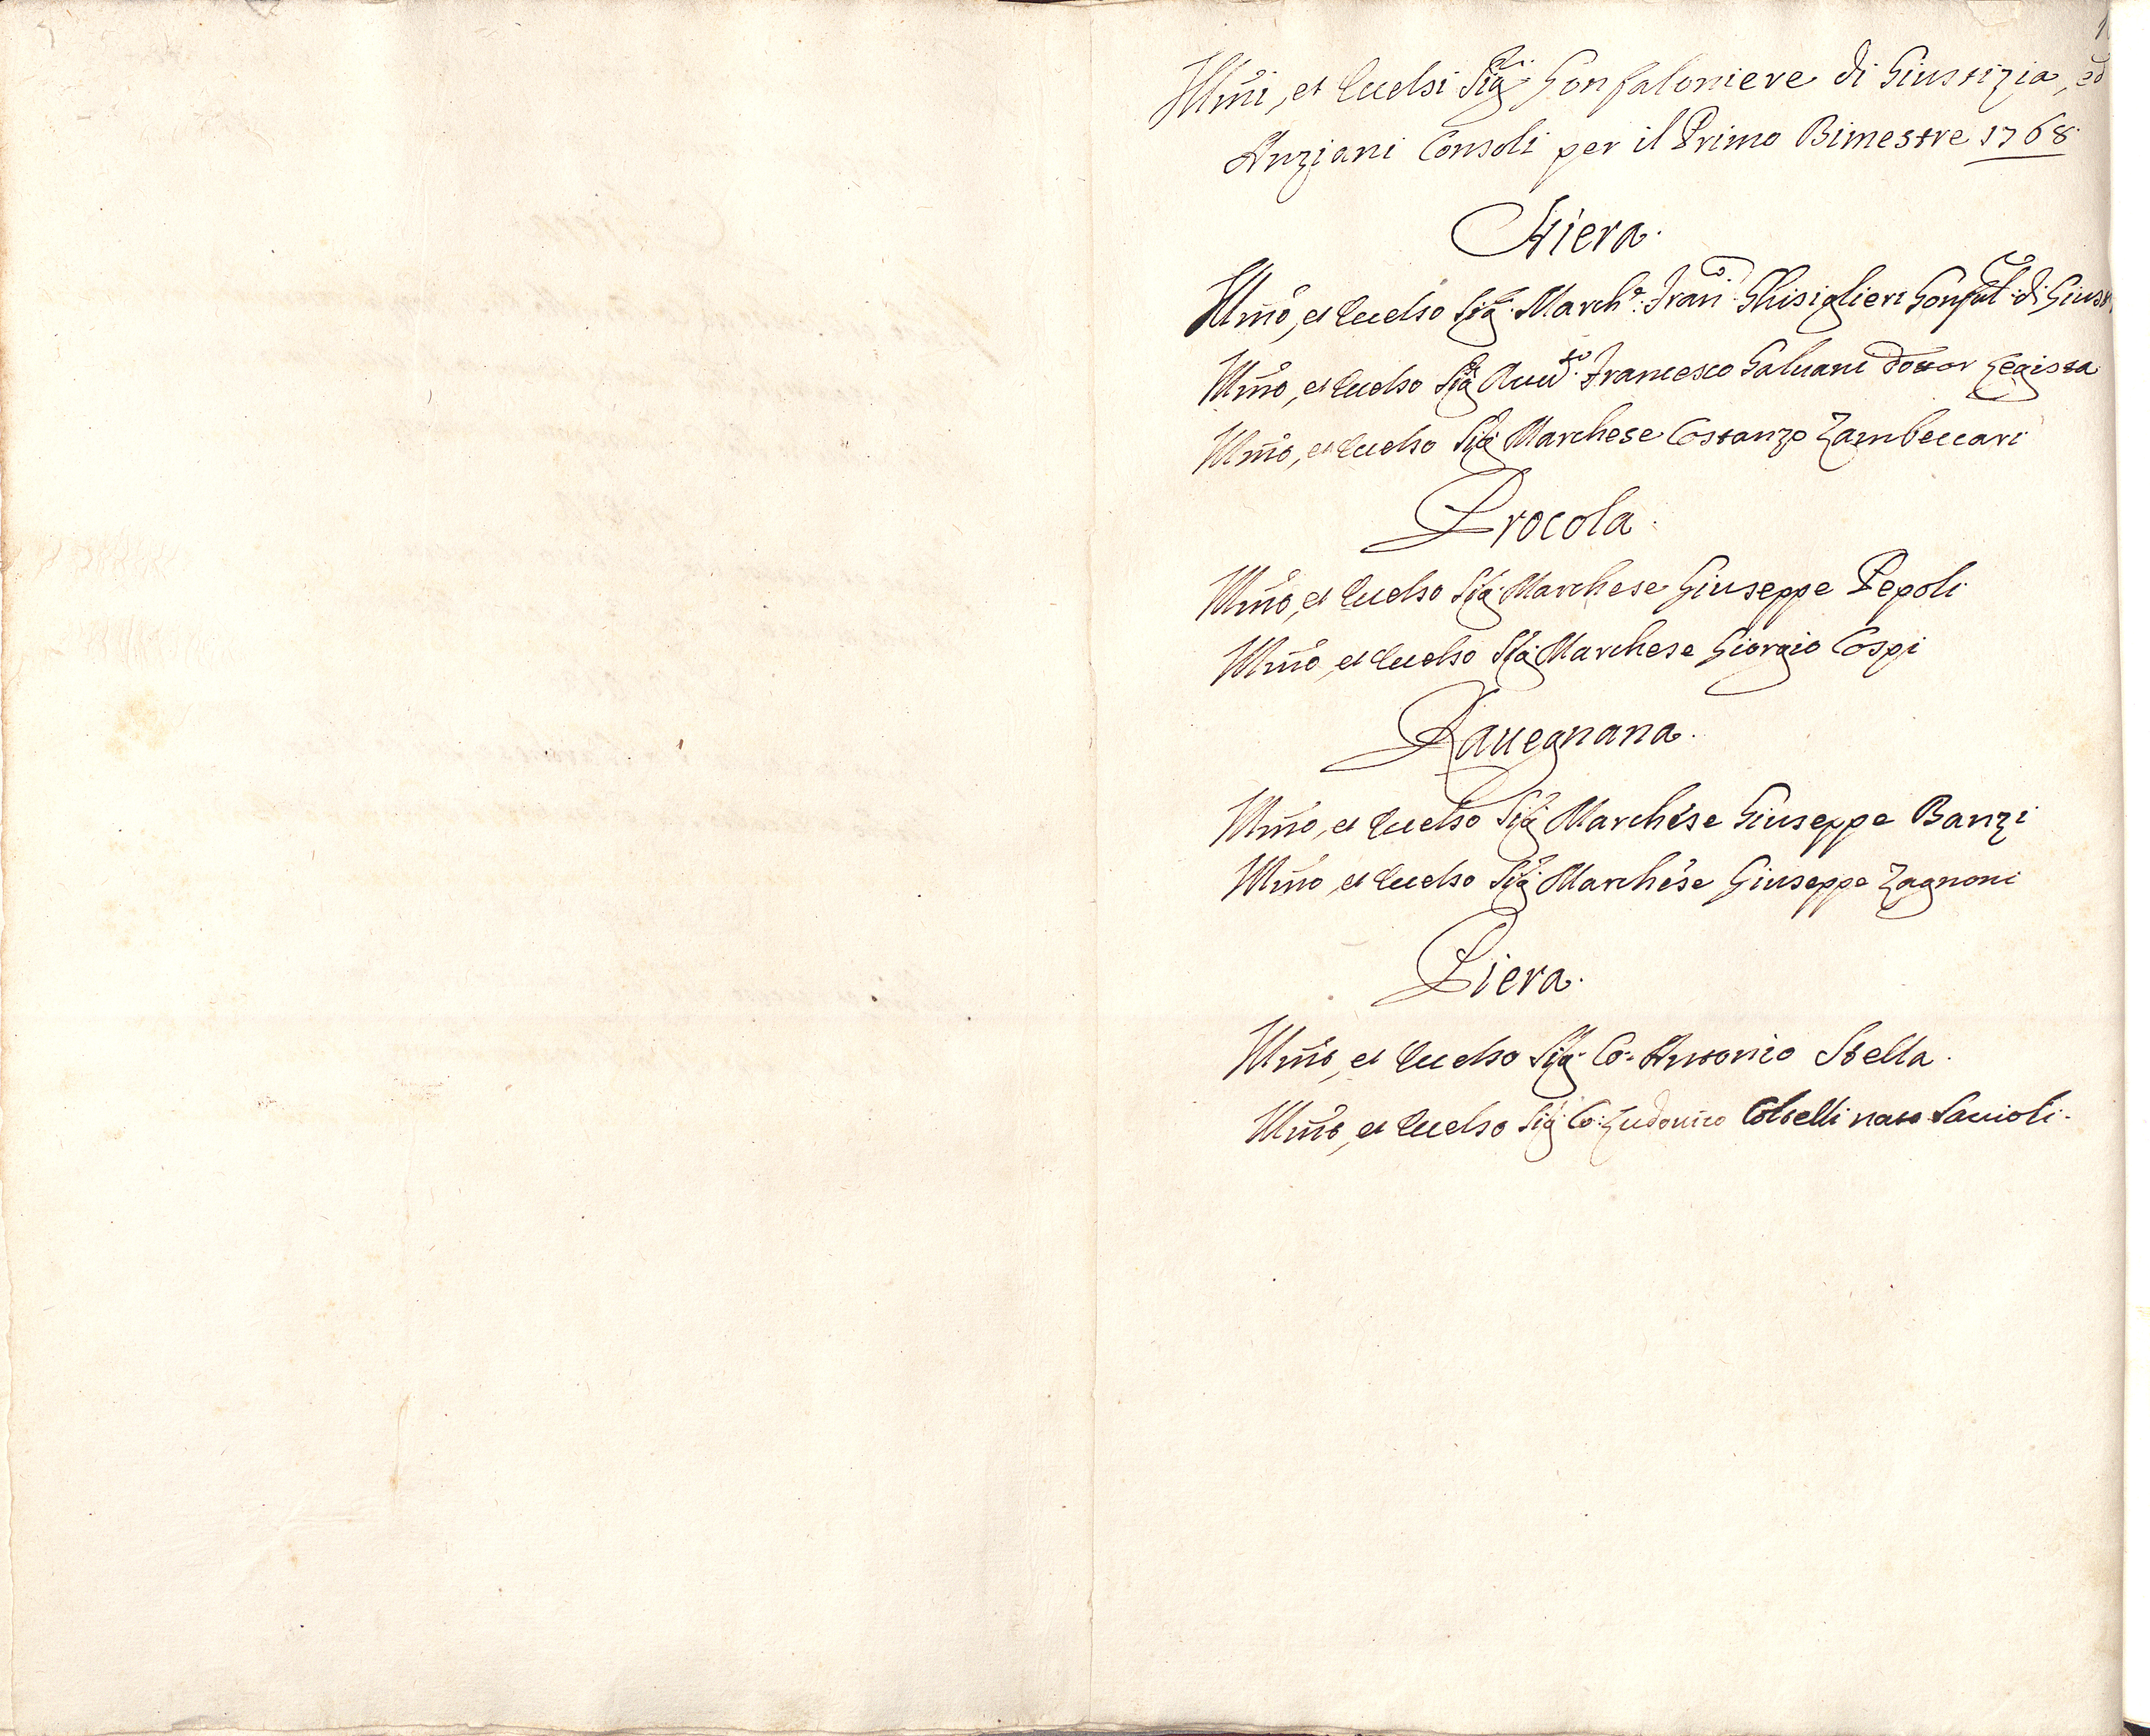 Illm̃i, et Eccelsi Sig.ri Gonfaloniere di Giustizia, ed
Anziani Consoli per il Primo Bimestre 1768.
Stiera.
Illm̃o, et Eccelso Sig.r March.e Fran.co Ghisiglieri Gonfal.e di Giust
Illm̃o, et Eccelso Sig.r Auu.to Francesco Galuani Dottor Legista
Illm̃o, et Eccelso Sig.r Marchese Costanzo Zambeccari
Procola.
Illm̃o, et Eccelso Sig.r Marchese Giuseppe Pepoli
Illm̃o, et Eccelso Sig.r Marchese Giorgio Cospi
Rauegnana.
Illm̃o, et Eccelso Sig.r Marchese Giuseppe Banzi
Illm̃o, et Eccelso Sig.r Marchese Giuseppe Zagnoni
Piera.
Illm̃o, et Eccelso Sig.r Co: Antonio Stella.
Illm̃o, et Eccelso Sig.r Co: Ludouico Coltelli nato Sauioli.